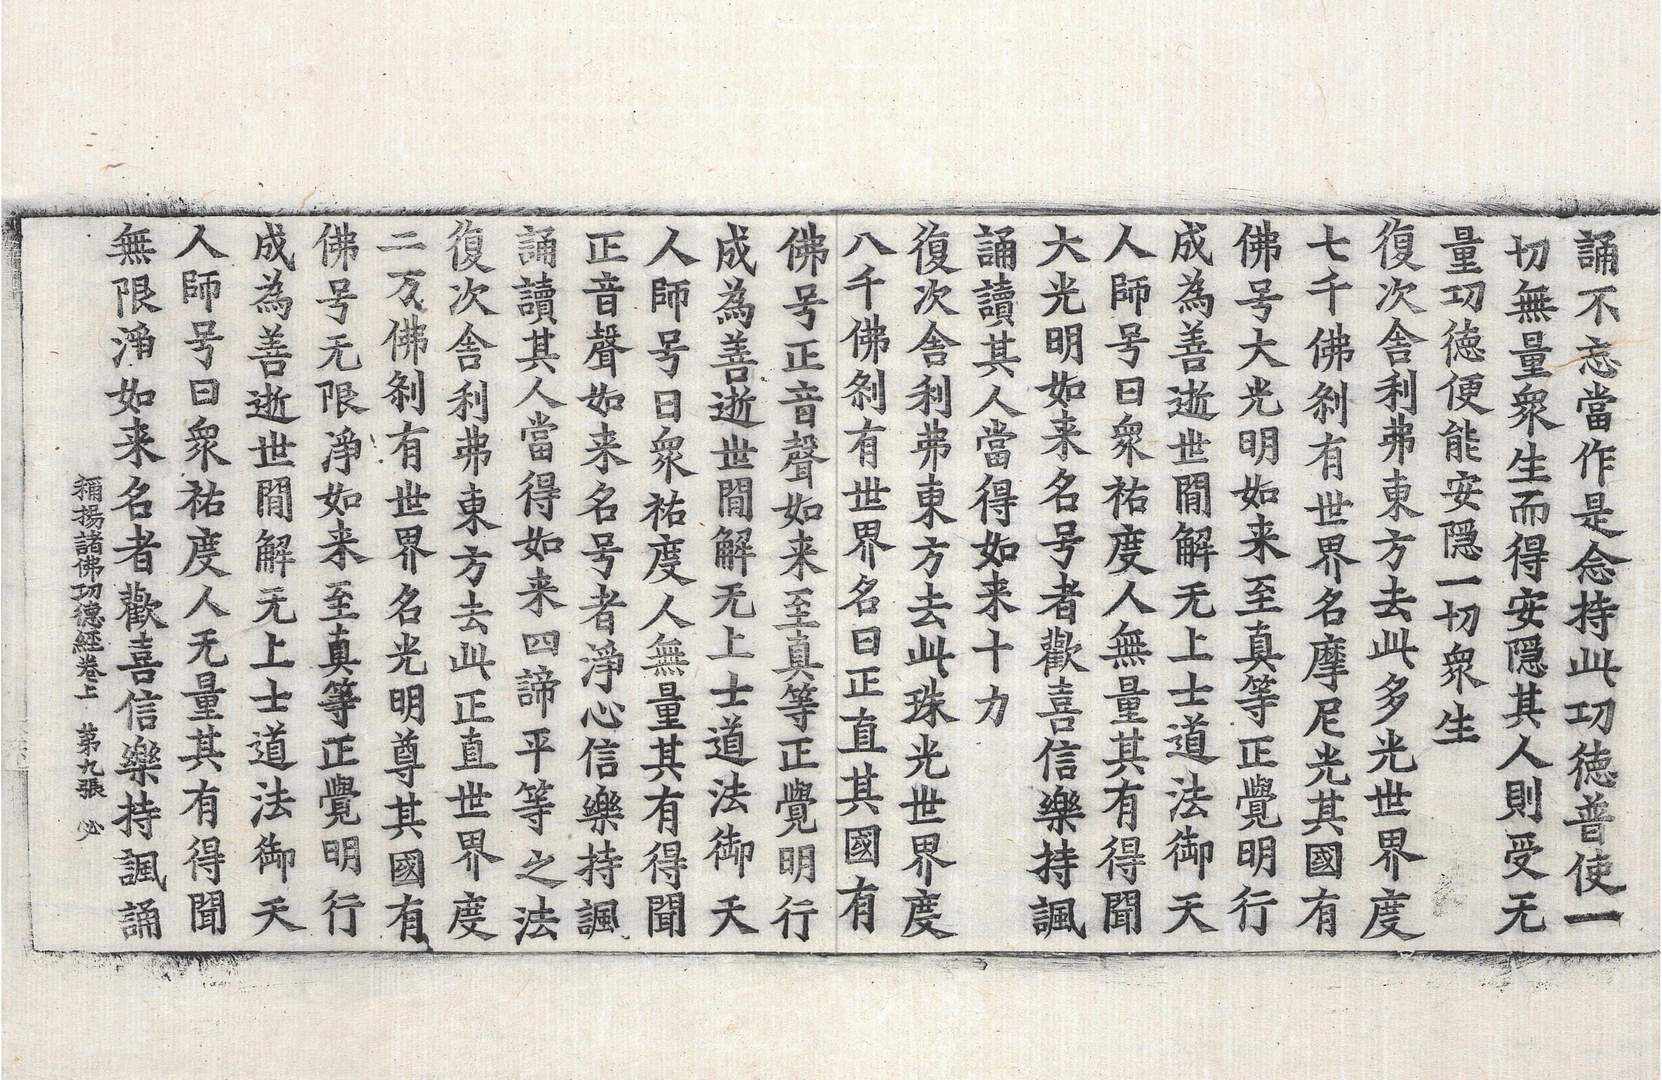 誦不忘當作是念持此功德普使一
切無量衆生而得安隱其人則受无
量功德便能安隱一切衆生
復次舍利弗東方去此多光世界度
七千佛刹有世界名摩尼光其國有
佛号大光明如来至真等正覺明行
成為善逝世閒解无上士道法御天
人師号曰衆祐度人無量其有得聞
大光明如来名号者歡喜信樂持諷
誦讀其人當得如来十力
復次舍利弗東方去此珠光世界度
八千佛刹有世界名曰正直其國有
佛号正音聲如来至真等正覺明行
成為善逝世閒解无上士道法御天
人師号曰衆祐度人無量其有得聞
正音聲如来名号者淨心信樂持諷
誦讀其人當得如来四諦平等之法
復次舍利弗東方去此正直世界度
二万佛刹有世界名光明尊其國有
佛号无限淨如来至真等正覺明行
成為善逝世閒解无上士道法御天
人師号曰衆祐度人无量其有得聞
無限淨如来名者歡喜信樂持諷誦
稱揚諸佛功德經卷上 第九張 必